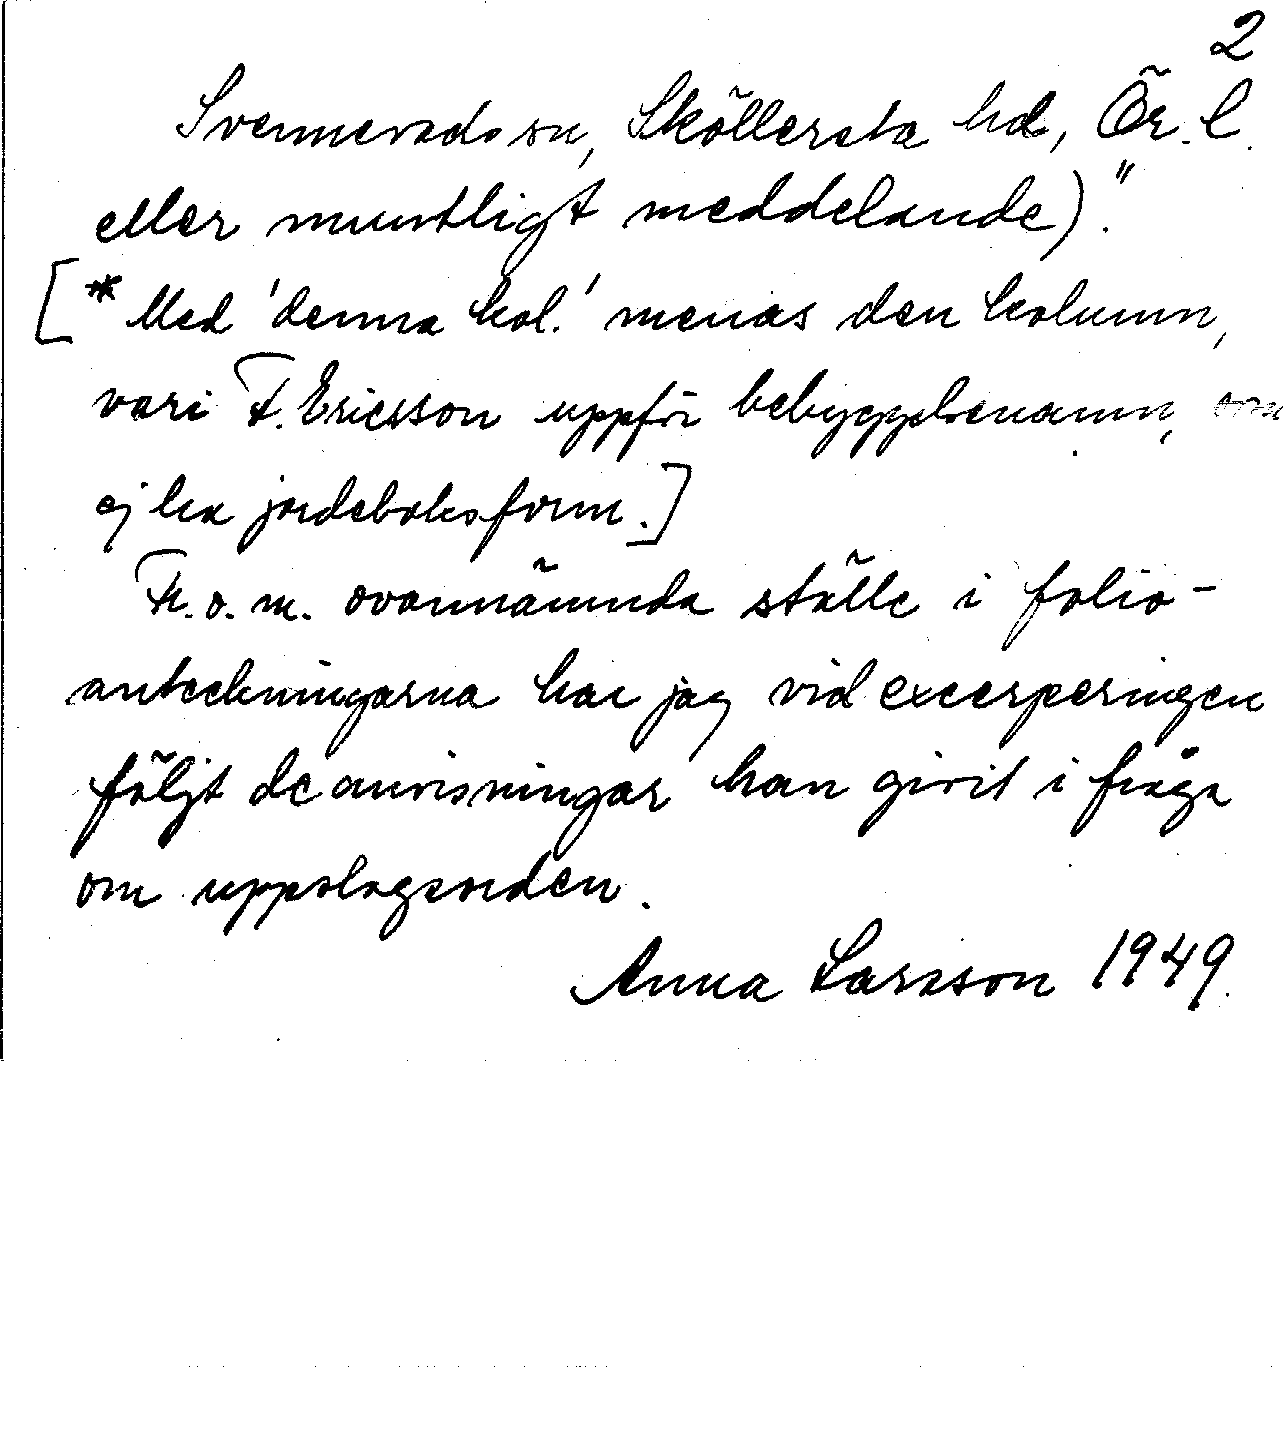 2
Svennevads sn, Sköllersta hd, Ör. l.
eller muntligt meddelande)."
[* Med 'denna kol.' menas den kolumn,
vari F. Ericsson uppför bebyggelsenamn, som
ej ha jordeboksform.]
Fr. o. m. ovannämnda ställe i folio-
anteckningarna har jag vid excerperingen
följt de anvisningar han givit i fråga
om uppslagsorden.
Anna Larsson 1949.